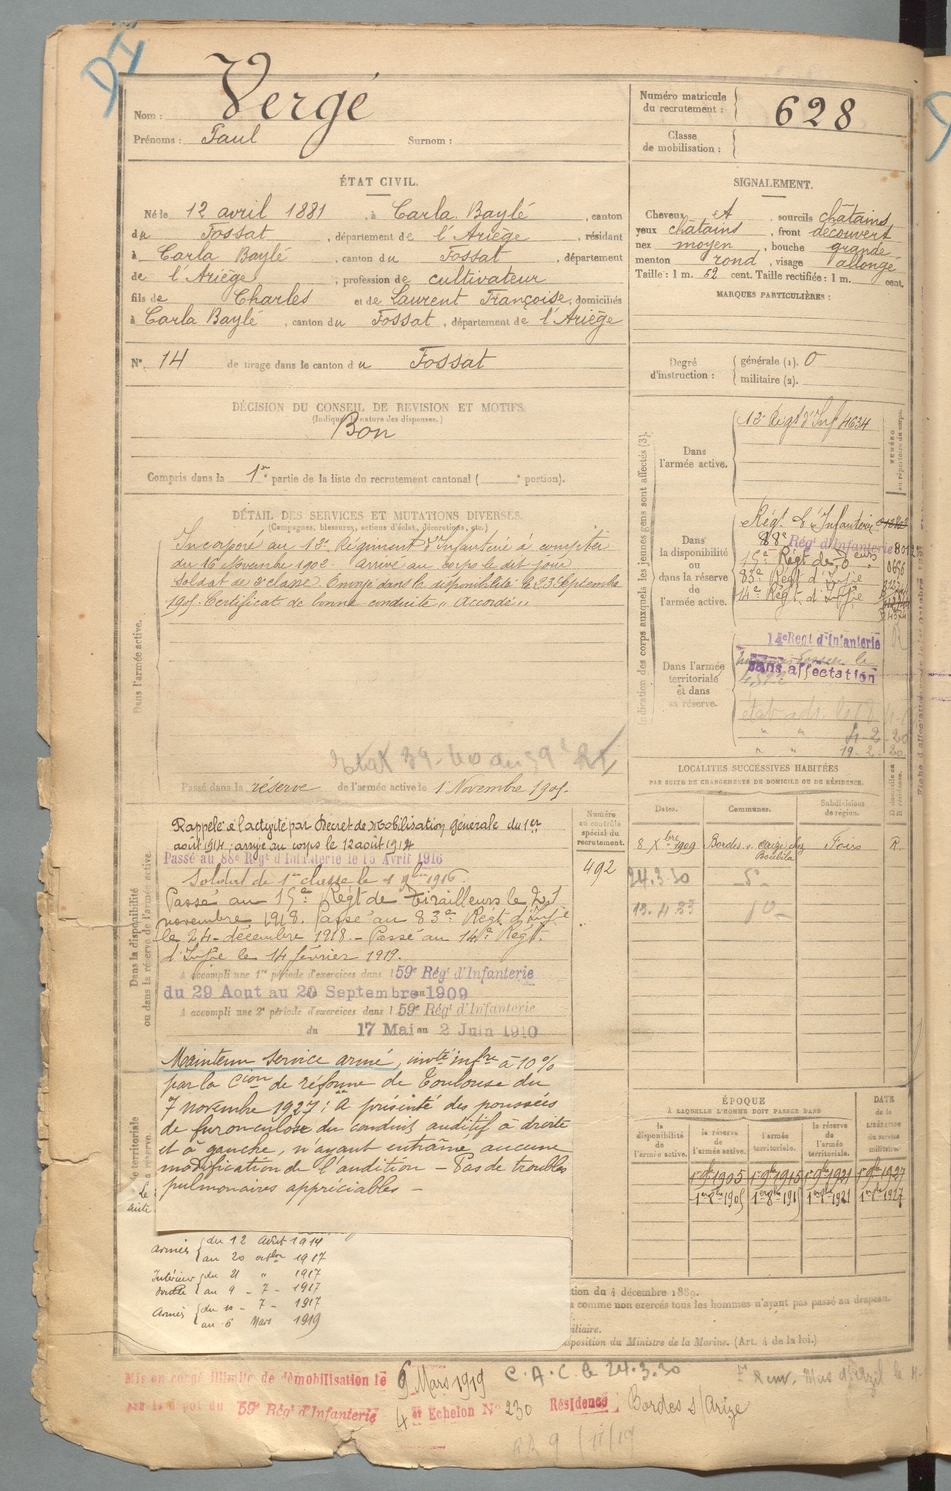 DI
Nom : Vergé
Prénoms : Paul Surnom :
Numéro matricule du recrutement : 628
Classe de mobilisation :
ÉTAT CIVIL.
Né le 12 avril 1881, à Carla Baylé, canton
du Fossat, département de l'Ariège, résidant
à Carla Baylé, canton du Fossat, département
de l'Ariège, profession de cultivateur
fils de Charles et de Laurent Françoise, domiciliés
à Carla Baylé, canton du Fossat, département de l'Ariège
N° 14 de tirage dans le canton du Fossat
SIGNALEMENT.
Cheveux et, sourcils châtains
yeux châtains, front découvert
nez moyen, bouche grande
menton rond, visage allongé
Taille : 1 m. 52 cent. Taille rectifiée : 1 m. cent.
MARQUES PARTICULIÈRES :
Degré d'instruction : générale (1). 0
militaire (2).
DÉCISION DU CONSEIL DE REVISION ET MOTIFS.
(Indiquer la nature des dispenses.)
Bon
Compris dans la 1re partie de la liste du recrutement cantonal ( e portion).
DÉTAIL DES SERVICES ET MUTATIONS DIVERSES.
(Campagnes, blessures, actions d'éclat, décorations, etc.)
Dans l'armée active.
Incorporé au 13e Régiment d'Infanterie à compter
du 16 Novembre 1902 arrivé au corps le dit jour
soldat de 2e classe. Envoyé dans la disponibilité le 23 Septembre
1905. Certificat de bonne conduite " Accordé "
59e RI
Passé dans la réserve de l'armée active le 1 Novembre 1905.
Indication des corps auxquels les jeunes gens sont affectés (3).
Dans l'armée active.
13e Régt d'Inf 4634
Dans la disponibilité ou dans la réserve de l'armée active.
Régt d'Infanterie
88e Régt d'Infanterie
15e Régt de
83e Régt d'Infie
14e Régt d'Infie
Dans l'armée territoriale et dans sa réserve.
14e Regt d'Infanterie
Sans affectation
19-2-20
LOCALITÉS SUCCESSIVES HABITÉES
PAR SUITE DE CHANGEMENTS DE DOMICILE OU DE RÉSIDENCE.
Dates. Communes. Subdivisions de région.
8 Xbre 1909 Bordes s. Arize Foix R.
24.3.30
13.4.33
Dans la disponibilité ou dans la réserve de l'armée active.
Numéro au contrôle spécial du recrutement.
492
Rappelé à l'activité par Décret de Mobilisation générale du 1er
août 1914 ; arrivé au corps le 12 août 1914
Passé au 88e Régt d'Infanterie le 15 Avril 1916
Soldat de 1re classe le 1 9bre 1916.
Passé au 15e Régt de Tirailleurs le 21
novembre 1918. Passé au 83e Régt d'Infie
le 24 décembre 1918. - Passé au 14e Régt.
d'Infie le 14 février 1919.
A accompli une 1re période d'exercices dans l 59e Rég t d'Infanterie
du 29 Aout au 20 Septembre 1909
A accompli une 2e période d'exercices dans l 59e Rég t d'Infanterie
du 17 Mai au 2 Juin 1910
Maintenu service armé, invté infre à 10 %
par la Cion de réforme de Toulouse du
7 novembre 1927 : A présenté des poussées
de furonculose du conduit auditif à droite
et à gauche, n'ayant entraîné aucune
modification de l'audition - Pas de troubles
pulmonaires appréciables -
ÉPOQUE
À LAQUELLE L'HOMME DOIT PASSER DANS
la disponibilité de l'armée active. la réserve de l'armée active. l'armée territoriale. la réserve de l'armée territoriale.
DATE de la LIBÉRATION du service militaire.
1er 9bre 1905 1er 9bre 1915 1er 9bre 1921 1er 9bre 1927
Armées du 12 Août 1914
au 20 octobre 1917
Intérieur du 21 " 1917
au 9 - 7 - 1917
Armées du 10 - 7 - 1917
au 6 Mars 1919
tion du 4 décembre 1889.
comme non exercés tous les hommes n'ayant pas passé au drapeau.
iliaire.
sposition du Ministre de la Marine. (Art. 4 de la loi.)
Mis en congé illimité de démobilisation le 6 Mars 1919 C.A.C. le 24.3.30
par le dépôt du 59e Rég t d'Infanterie 4e Echelon N° 230 Résidence : Bordes s/Arize